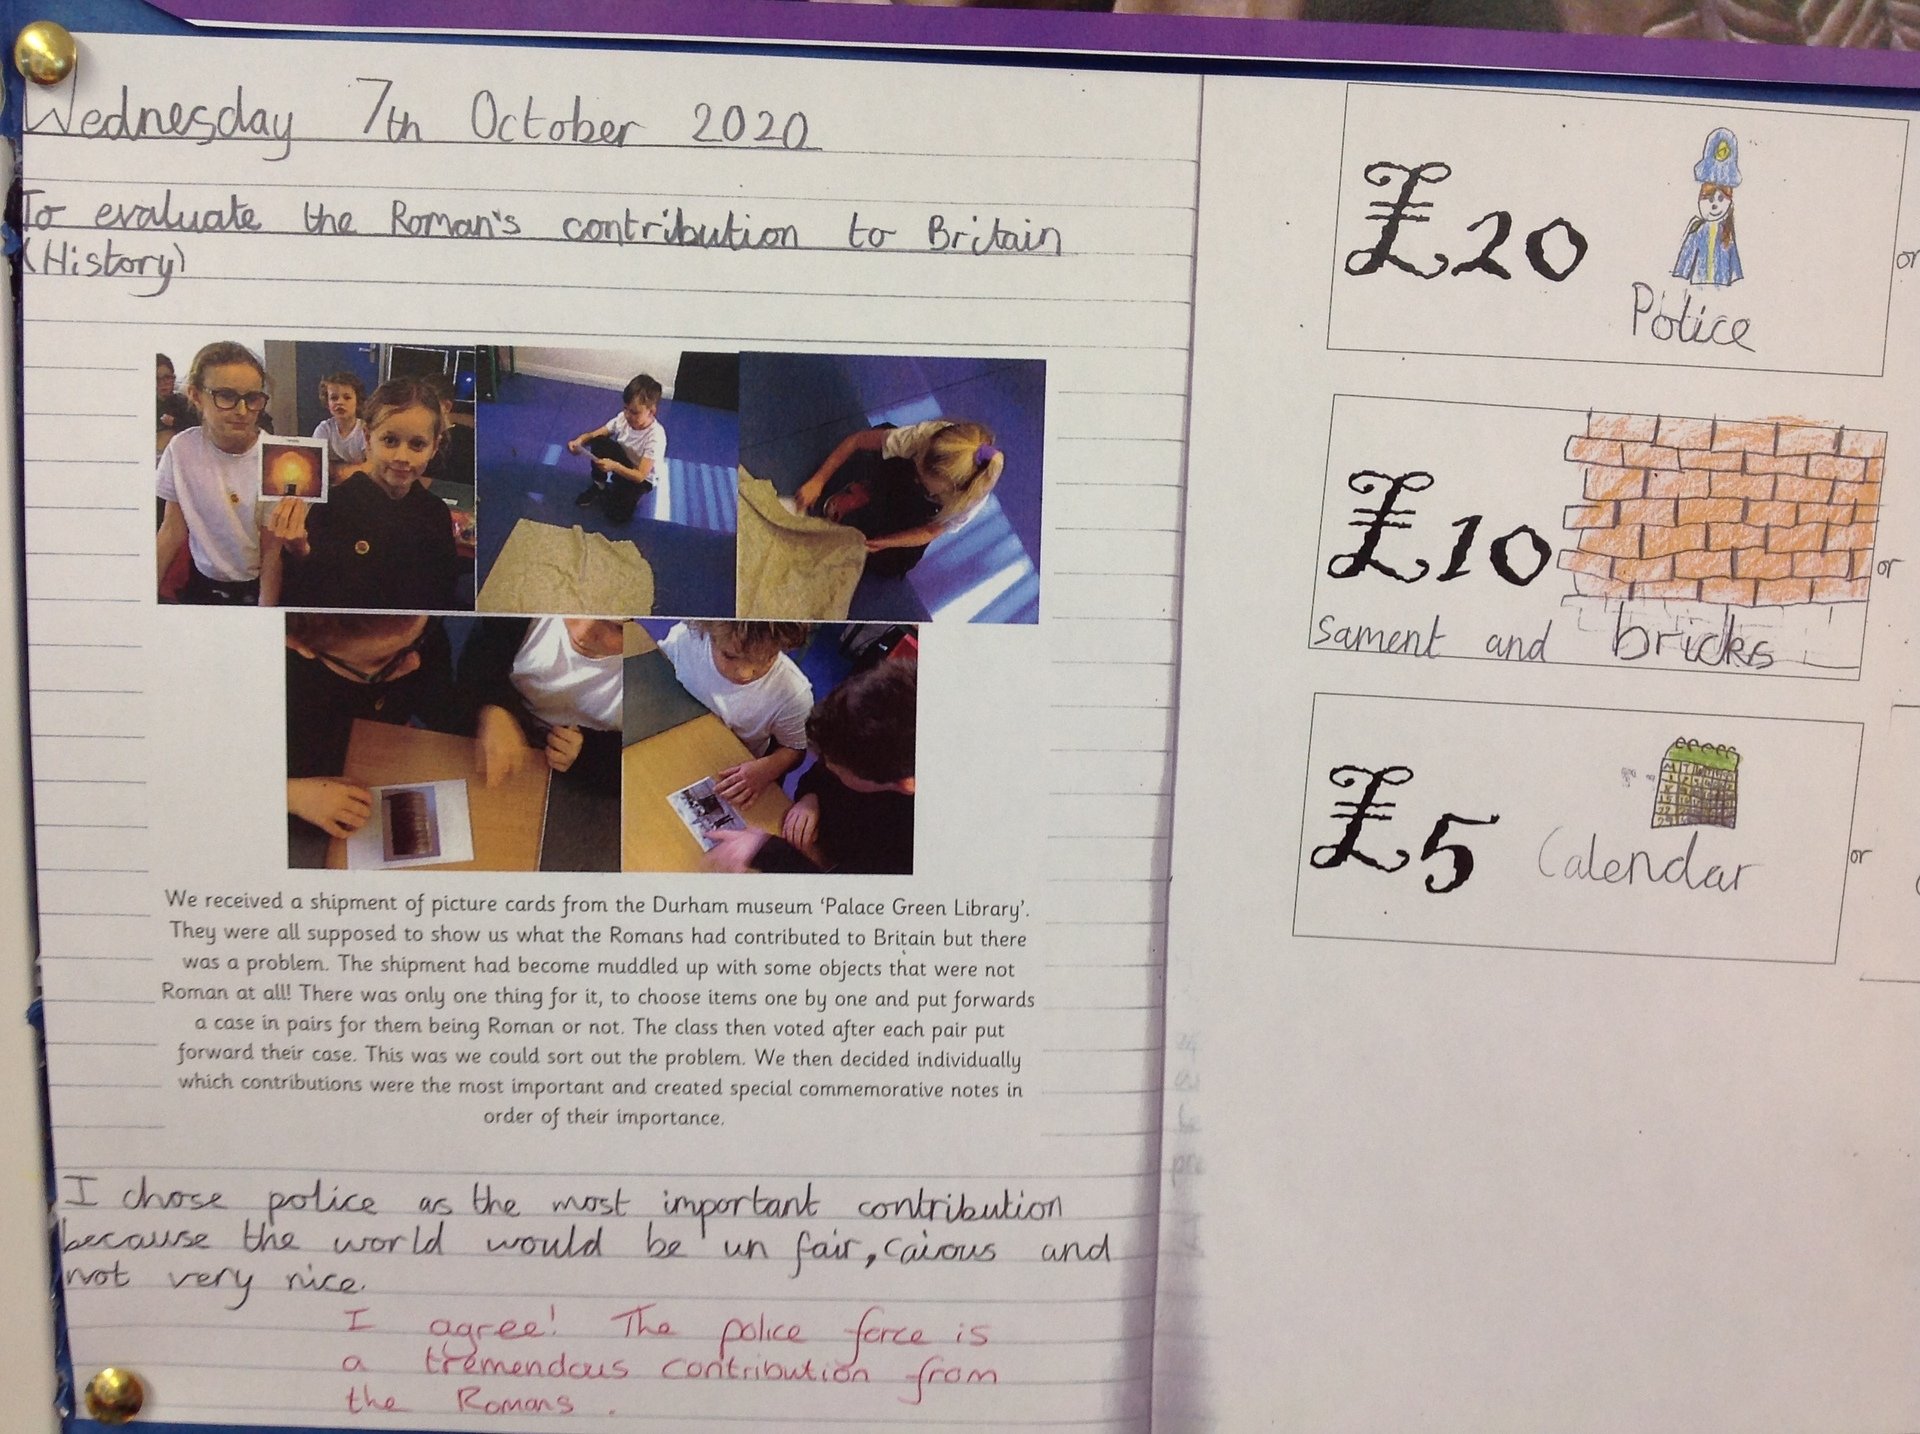 Wednesday 7th October 2020
To evaluate the Roman's contribution to Britain
(History)
We received a shipment of picture cards from the Durham museum ‘Palace Green Library’.
They were all supposed to show us what the Romans had contributed to Britain but there
was a problem. The shipment had become muddled up with some objects that were not
Roman at all! There was only one thing for it, to choose items one by one and put forwards
a case in pairs for them being Roman or not. The class then voted after each pair put
forward their case. This was we could sort out the problem. We then decided individually
which contributions were the most important and created special commemorative notes in
order of their importance.
I chose police as the most important contribution
because the world would be un fair, cairous and
not very nice.
I agree! The police force is
a tremendous contribution from
the Romans.
£20
Police
or
£10
sament and bricks
or
£5
Calendar
or